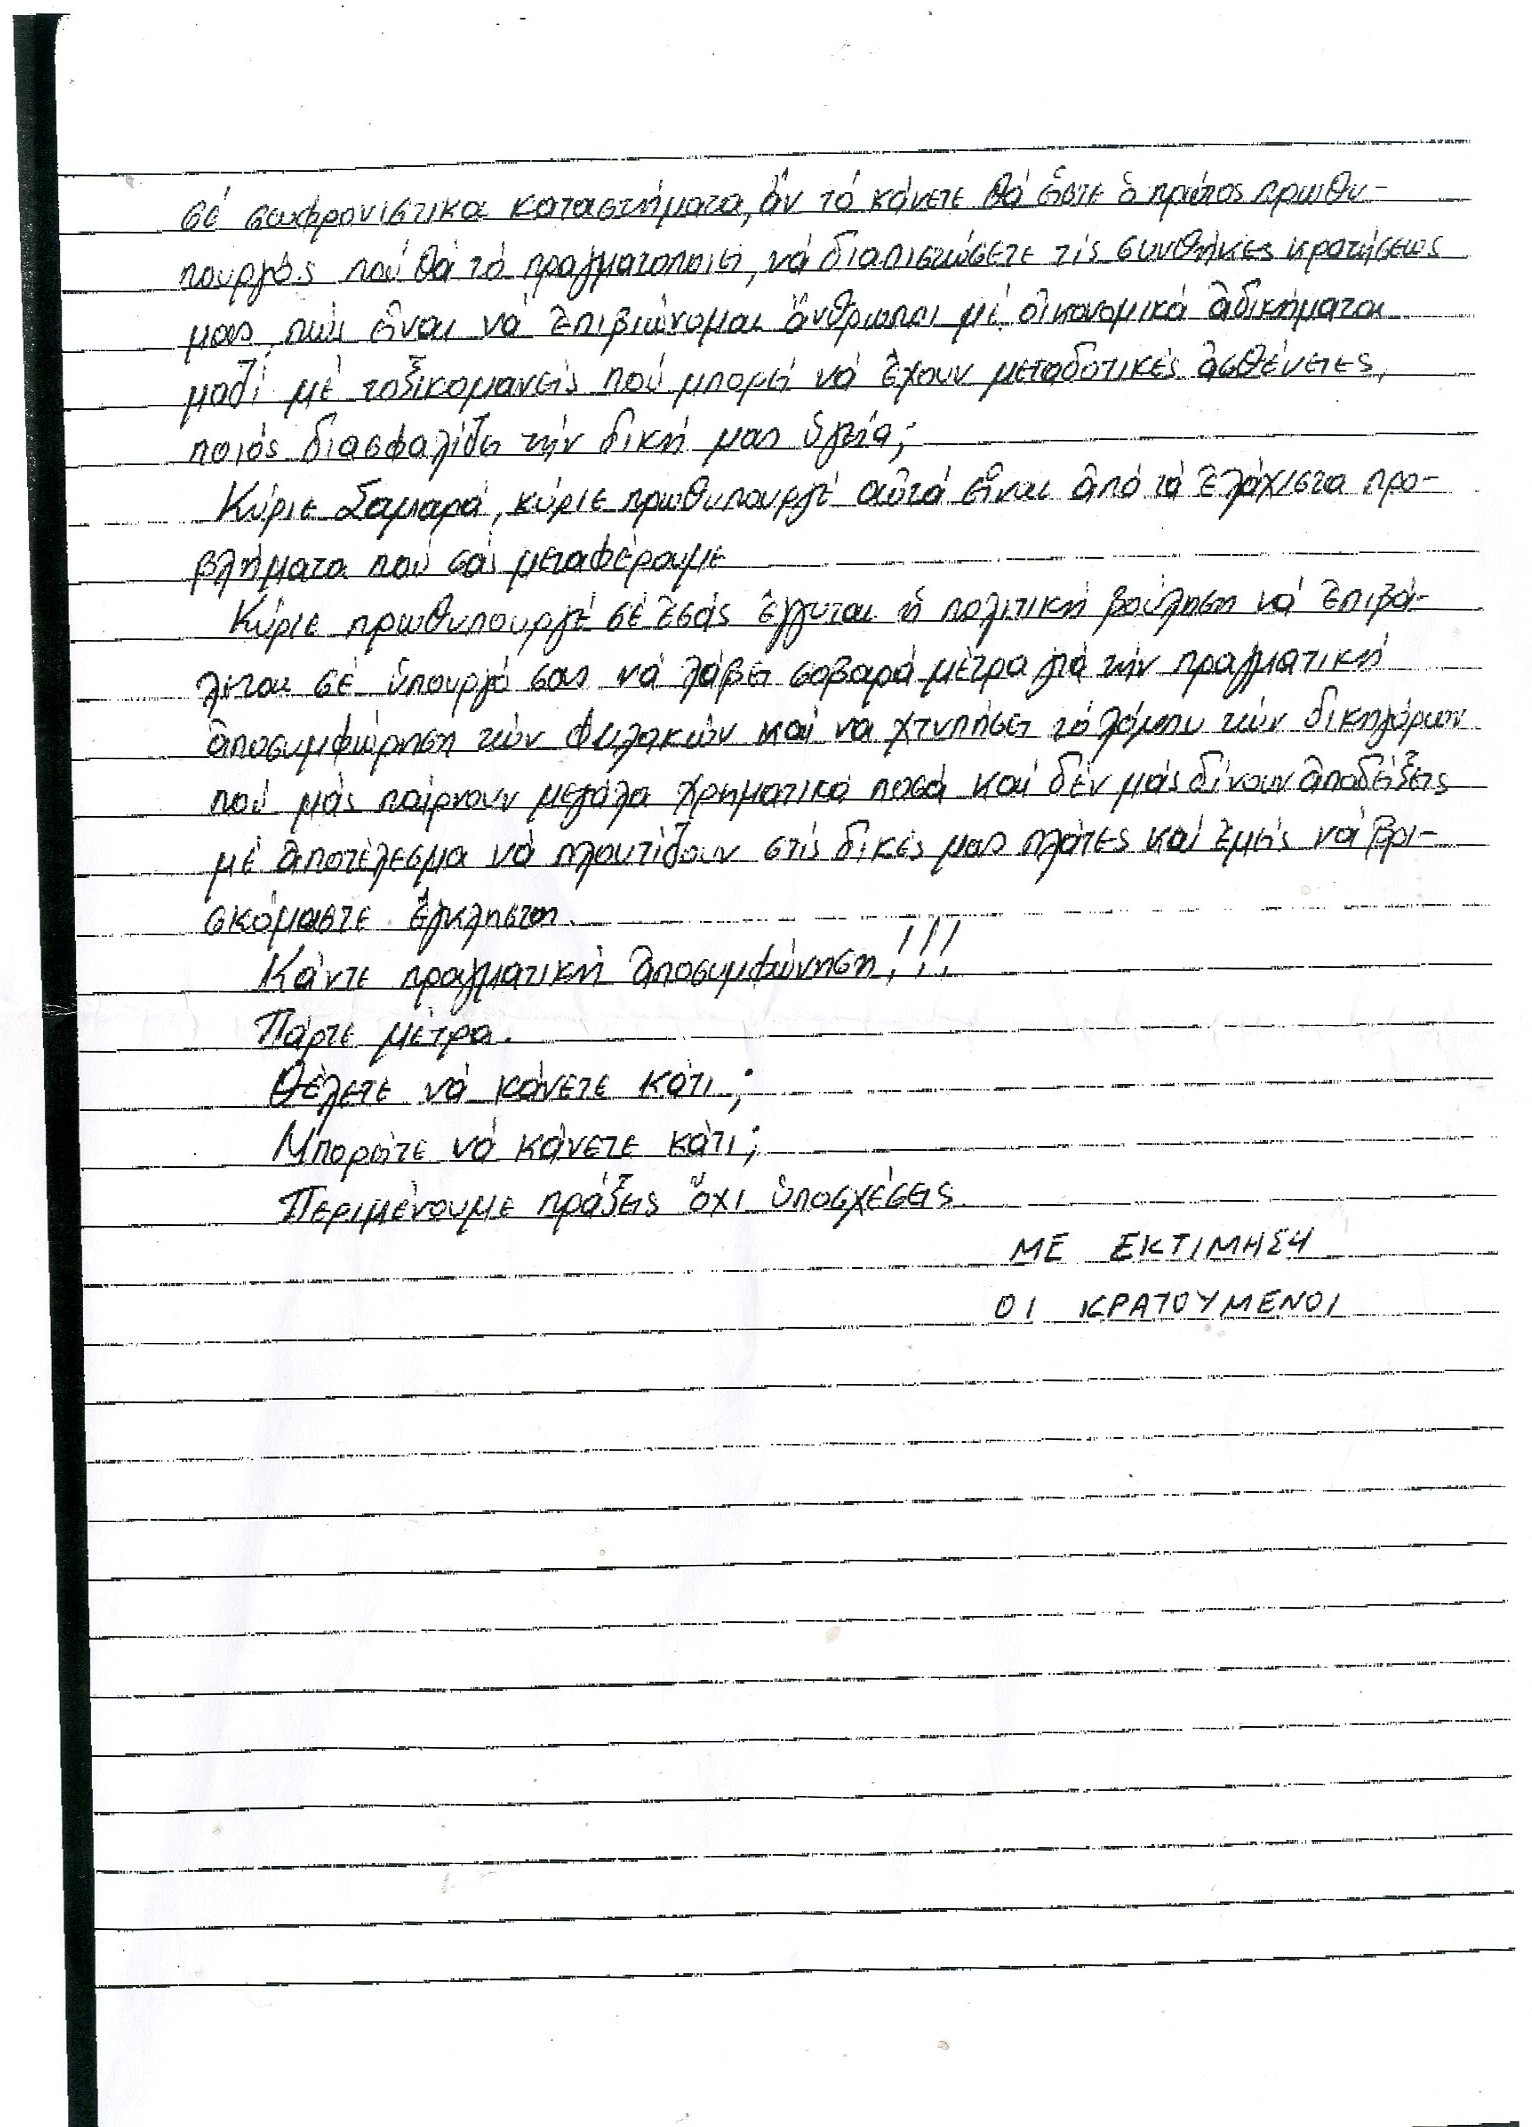 σέ σωφρονιστικα καταστήματα, ἄν τό κάνετε θά εἶστε ὁ πρώτος πρωθυ-
πουργός πού θά τό πραγματοποιεί, νά διαπιστώσετε τίς συνθήκες κρατήσεως
μας, πώς εἶναι νά ἐπιβιώνομαι ἄνθρωποι μέ οἰκονομικά ἀδικήματα
μαζί μέ τοξικομανείς πού μπορεί νά ἔχουν μεταδοτικές ἀσθένειες,
ποιός διασφαλίζει τήν δική μας ὑγεία;
Κύριε Σαμαρά, κύριε πρωθυπουργέ αὐτά εἶναι ἀπό τά ἐλάχιστα προ-
βλήματα πού σάς μεταφέρουμε
Κύριε πρωθυπουργέ σέ ἐσάς ἔγγυται ἡ πολιτική βούληση νά ἐπιβά-
λεται σέ ὑπουργό σας νά λάβει σοβαρά μέτρα γιά τήν πραγματική
ἀποσυμφώρηση τών φυλακών καί να χτυπήσει τό λόμπυ τών δικηγόρων
πού μάς παίρνουν μεγάλα χρηματικά ποσά καί δέν μάς δίνουν ἀποδείξεις
μέ ἀποτέλεσμα νά πλουτίζουν στίς δικές μας πλάτες καί ἐμείς νά βρι-
σκόμαστε ἔγκλειστοι.
Κάντε πραγματική ἀποσυμφώνηση!!!
Πάρτε μέτρα.
Θέλετε νά κάνετε κάτι;
Μπορείτε νά κάνετε κάτι;
Περιμένουμε πράξεις ὄχι ὑποσχέσεις.
ΜΕ ΕΚΤΙΜΗΣΗ
ΟΙ ΚΡΑΤΟΥΜΕΝΟΙ